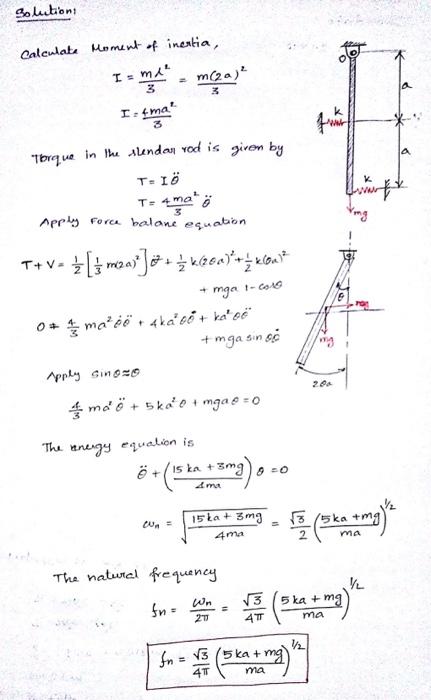 Solution:
Calculate Moment of inertia,
I = ml²/3 = m(2a)²/3
I = 4ma²/3
Torque in the slendar rod is given by
T = Iθ̈
T = 4ma²/3 θ̈
Apply Force balane equation
T+V = 1/2 [1/3 m(2a)²] θ̇² + 1/2 k(2θa)² + 1/2 k(θa)²
+ mga 1-cosθ
0 = 4/3 ma² θ̇θ̈ + 4ka²θθ̇ + ka²θθ̇
+ mga sinθθ̇
Apply sinθ≈θ
4/3 ma²θ̈ + 5ka²θ + mgaθ = 0
The energy equation is
θ̈ + (15ka + 3mg / 4ma) θ = 0
ωn = √(15ka + 3mg / 4ma) = √3/2 (5ka + mg / ma)^1/2
The natural frequency
fn = ωn/2π = √3/4π (5ka + mg / ma)^1/2
fn = √3/4π (5ka + mg / ma)^1/2
O
a
k
a
k
mg
θ
mg
2θa